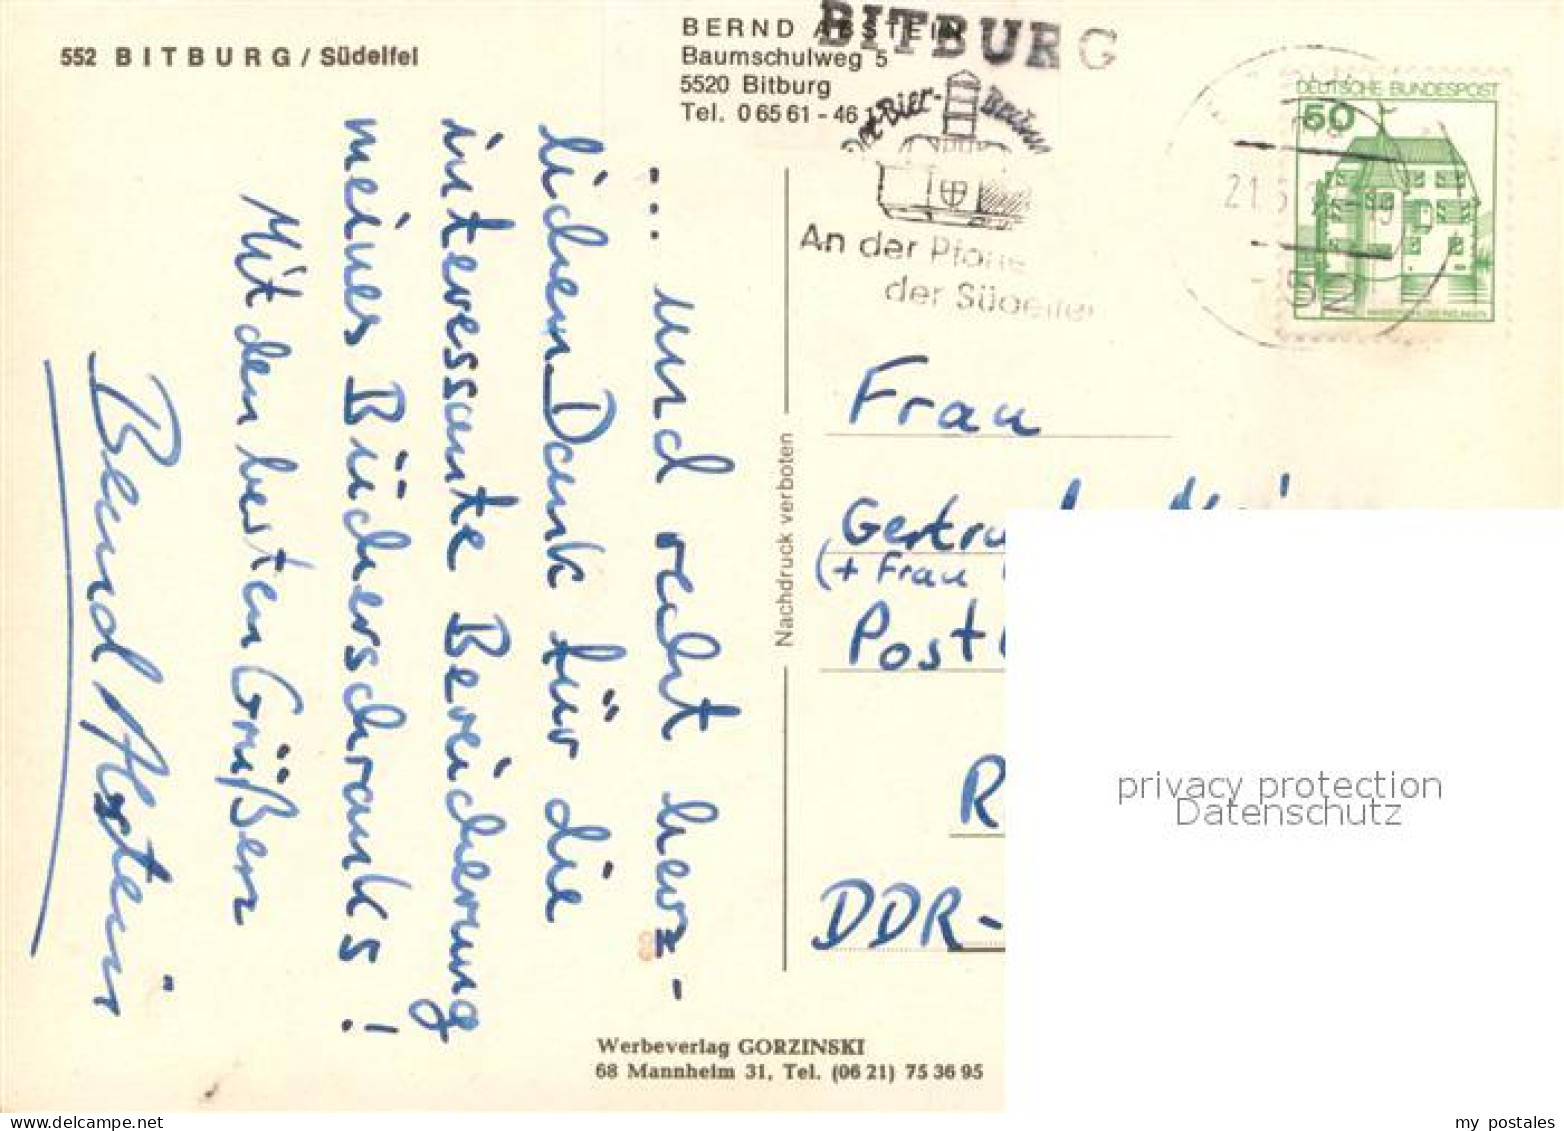 552 BITBURG / Südeifel
BERND ABSTEIN
Baumschulweg 5
5520 Bitburg
Tel. 0 65 61 - 46
BITBURG
An der Pforte
der Südeifel
DEUTSCHE BUNDESPOST
50
... und recht herz-
lichen Dank für die
interessante Bereicherung
meines Bücherschranks!
Mit den besten Grüßen
Bernd Abstein
Nachdruck verboten
Frau
(+ Frau
DDR-
privacy protection
Datenschutz
Werbeverlag GORZINSKI
68 Mannheim 31, Tel. (06 21) 75 36 95
my postales